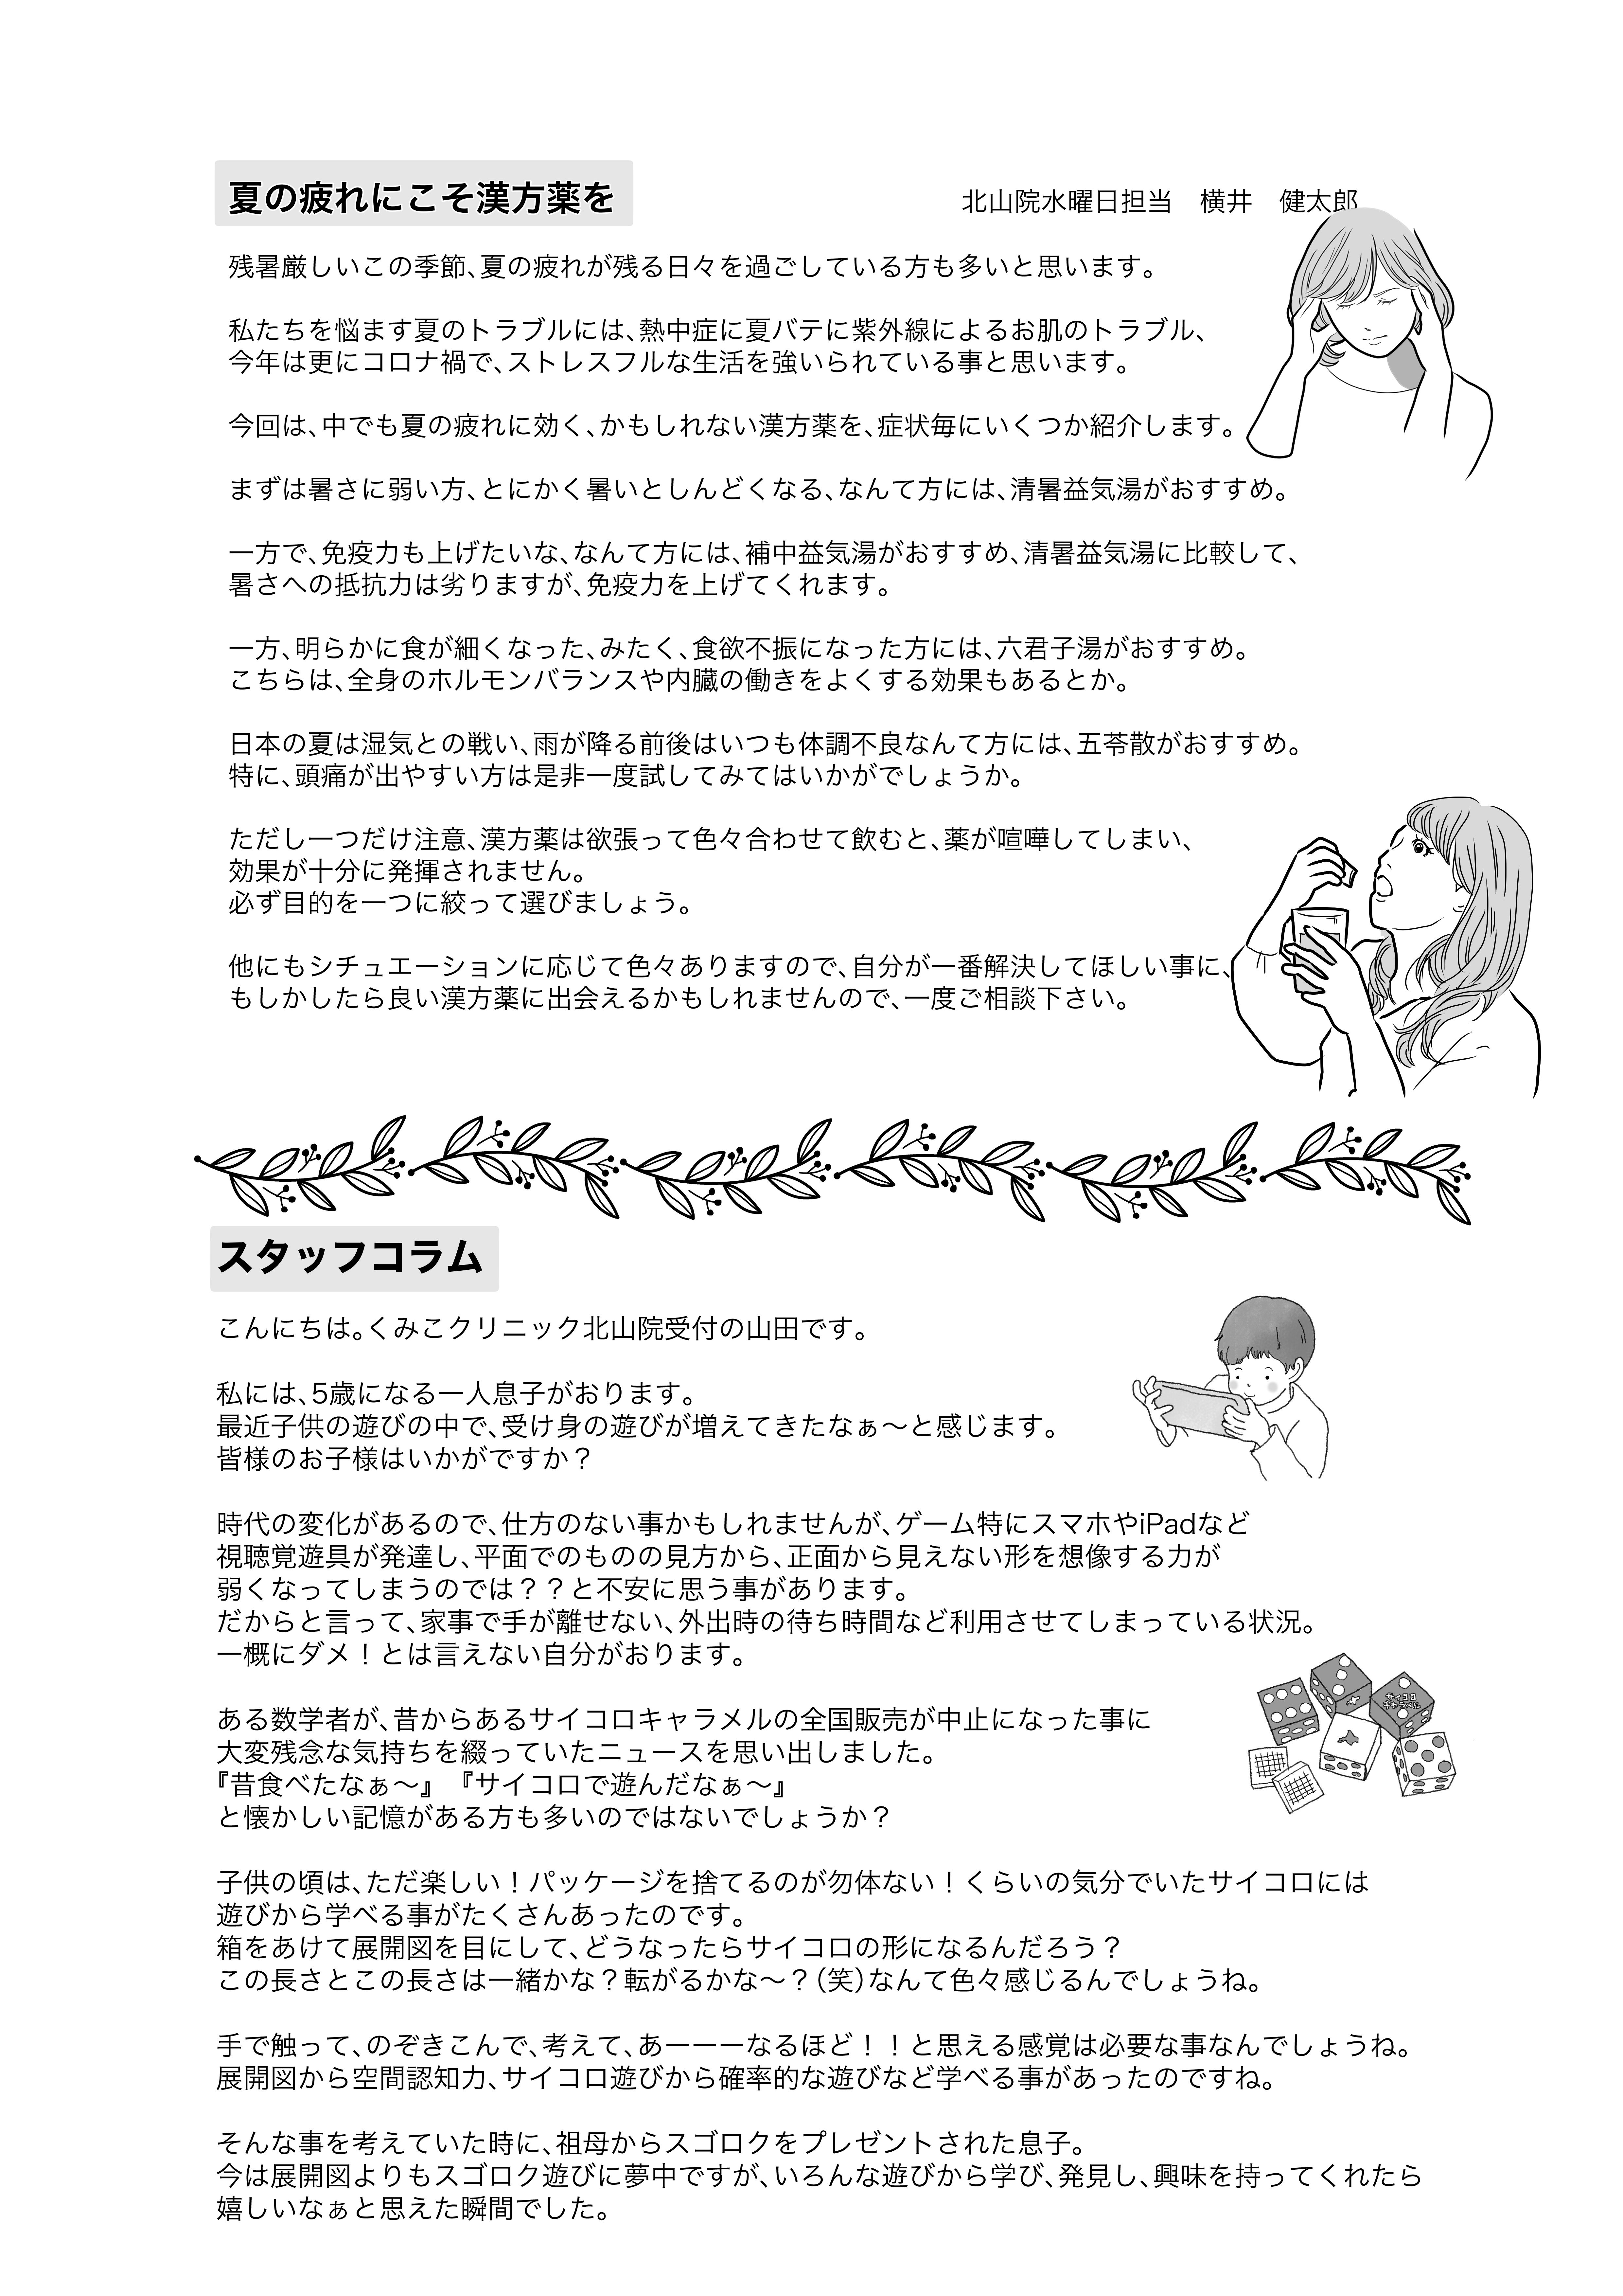 夏の疲れにこそ漢方薬を
北山院水曜日担当　横井　健太郎
残暑厳しいこの季節、夏の疲れが残る日々を過ごしている方も多いと思います。
私たちを悩ます夏のトラブルには、熱中症に夏バテに紫外線によるお肌のトラブル、
今年は更にコロナ禍で、ストレスフルな生活を強いられている事と思います。
今回は、中でも夏の疲れに効く、かもしれない漢方薬を、症状毎にいくつか紹介します。
まずは暑さに弱い方、とにかく暑いとしんどくなる、なんて方には、清暑益気湯がおすすめ。
一方で、免疫力も上げたいな、なんて方には、補中益気湯がおすすめ、清暑益気湯に比較して、
暑さへの抵抗力は劣りますが、免疫力を上げてくれます。
一方、明らかに食が細くなった、みたく、食欲不振になった方には、六君子湯がおすすめ。
こちらは、全身のホルモンバランスや内臓の働きをよくする効果もあるとか。
日本の夏は湿気との戦い、雨が降る前後はいつも体調不良なんて方には、五苓散がおすすめ。
特に、頭痛が出やすい方は是非一度試してみてはいかがでしょうか。
ただし一つだけ注意、漢方薬は欲張って色々合わせて飲むと、薬が喧嘩してしまい、
効果が十分に発揮されません。
必ず目的を一つに絞って選びましょう。
他にもシチュエーションに応じて色々ありますので、自分が一番解決してほしい事に、
もしかしたら良い漢方薬に出会えるかもしれませんので、一度ご相談下さい。
スタッフコラム
こんにちは。くみこクリニック北山院受付の山田です。
私には、5歳になる一人息子がおります。
最近子供の遊びの中で、受け身の遊びが増えてきたなぁ〜と感じます。
皆様のお子様はいかがですか？
時代の変化があるので、仕方のない事かもしれませんが、ゲーム特にスマホやiPadなど
視聴覚遊具が発達し、平面でのものの見方から、正面から見えない形を想像する力が
弱くなってしまうのでは？？と不安に思う事があります。
だからと言って、家事で手が離せない、外出時の待ち時間など利用させてしまっている状況。
一概にダメ！とは言えない自分がおります。
ある数学者が、昔からあるサイコロキャラメルの全国販売が中止になった事に
大変残念な気持ちを綴っていたニュースを思い出しました。
『昔食べたなぁ〜』『サイコロで遊んだなぁ〜』
と懐かしい記憶がある方も多いのではないでしょうか？
サイコロ
キャラメル
子供の頃は、ただ楽しい！パッケージを捨てるのが勿体ない！くらいの気分でいたサイコロには
遊びから学べる事がたくさんあったのです。
箱をあけて展開図を目にして、どうなったらサイコロの形になるんだろう？
この長さとこの長さは一緒かな？転がるかな〜？（笑）なんて色々感じるんでしょうね。
手で触って、のぞきこんで、考えて、あーーーなるほど！！と思える感覚は必要な事なんでしょうね。
展開図から空間認知力、サイコロ遊びから確率的な遊びなど学べる事があったのですね。
そんな事を考えていた時に、祖母からスゴロクをプレゼントされた息子。
今は展開図よりもスゴロク遊びに夢中ですが、いろんな遊びから学び、発見し、興味を持ってくれたら
嬉しいなぁと思えた瞬間でした。